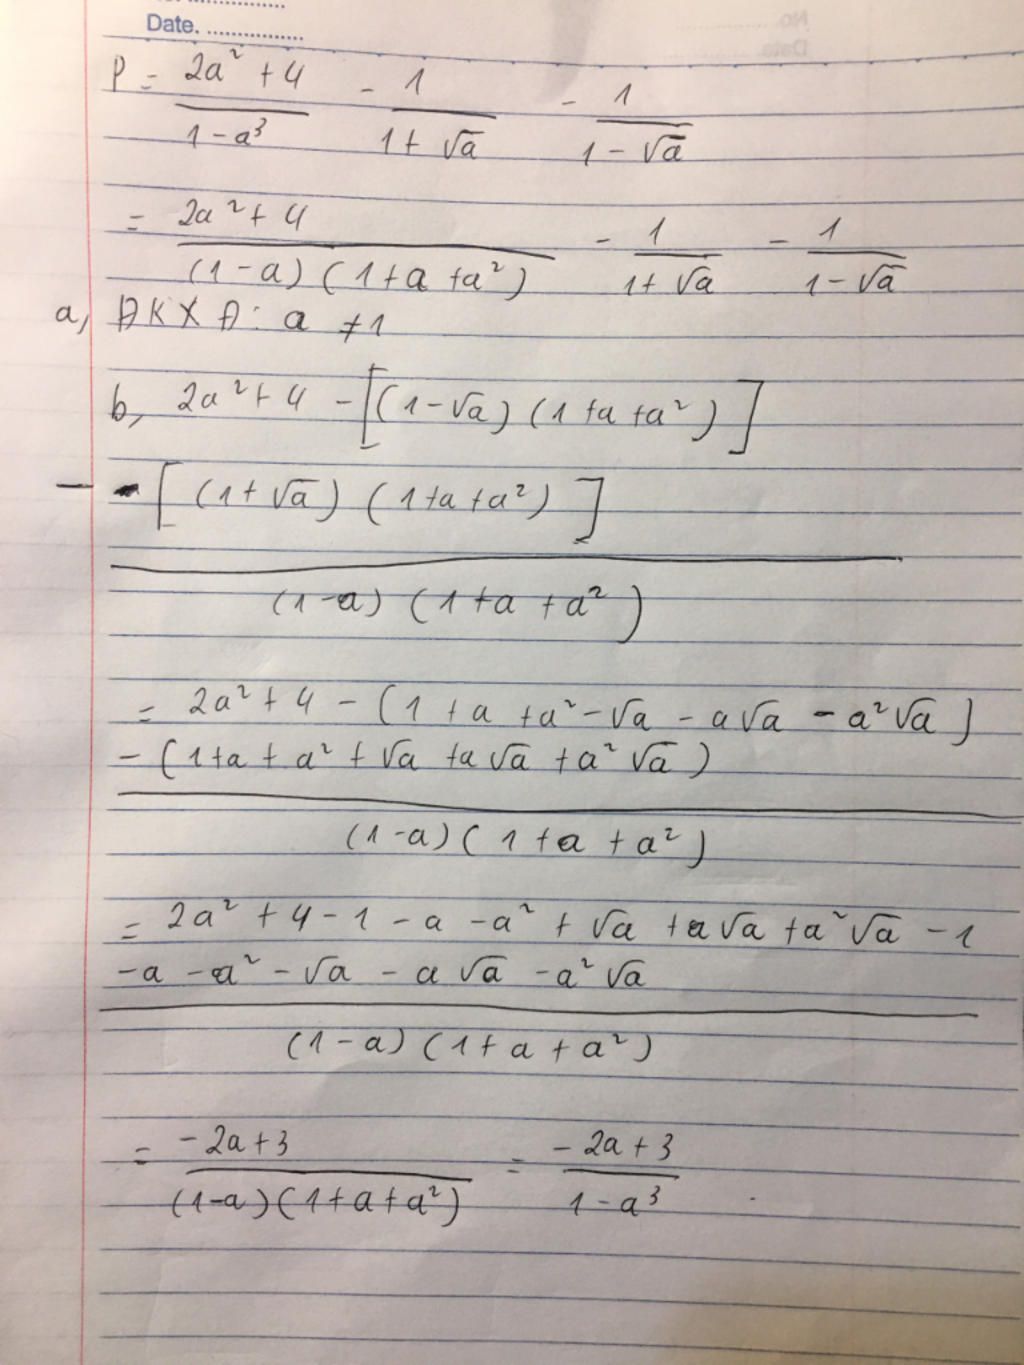 Date. ..................
P = \frac{2a² + 4}{1 - a³} - \frac{1}{1 + √a} - \frac{1}{1 - √a}
= \frac{2a² + 4}{(1 - a)(1 + a + a²)} - \frac{1}{1 + √a} - \frac{1}{1 - √a}
a, ĐKXĐ: a ≠ 1
b, 2a² + 4 - [(1 - √a)(1 + a + a²)]
- [(1 + √a)(1 + a + a²)]
(1 - a)(1 + a + a²)
= 2a² + 4 - (1 + a + a² - √a - a√a - a²√a)
- (1 + a + a² + √a + a√a + a²√a)
(1 - a)(1 + a + a²)
= 2a² + 4 - 1 - a - a² + √a + a√a + a²√a - 1
- a - a² - √a - a√a - a²√a
(1 - a)(1 + a + a²)
= \frac{-2a + 3}{(1 - a)(1 + a + a²)} = \frac{-2a + 3}{1 - a³}